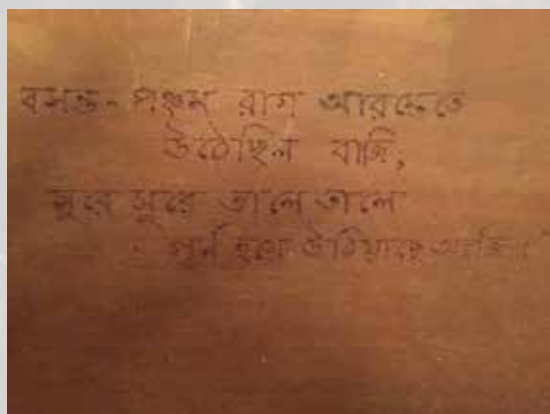 বসন্ত- পঞ্চম রাগ আরম্ভেতে
উঠেছিল বাজি,
সুরে সুরে তালে তালে
পূর্ন হয়ে উঠিয়াছে আজি।